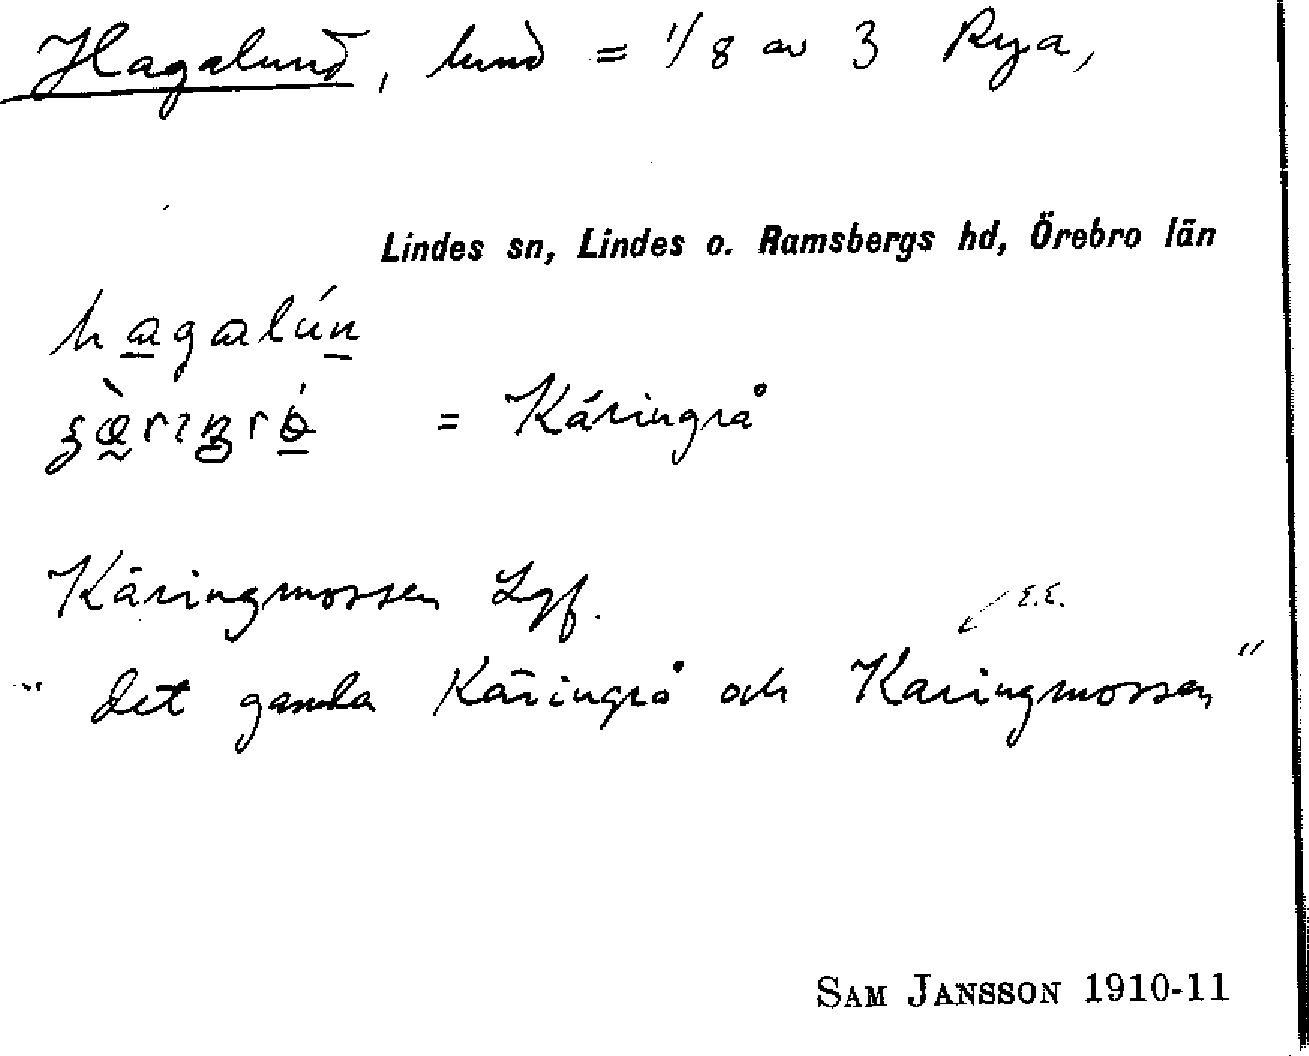 Hagalund, lund = 1/8 av 3 Rya,
Lindes sn, Lindes o. Ramsbergs hd, Örebro län
hagalún
= Käringrå
Käringmossen Lgf.
" det gamla Käringrå och Karingmossen "
SAM JANSSON 1910-11